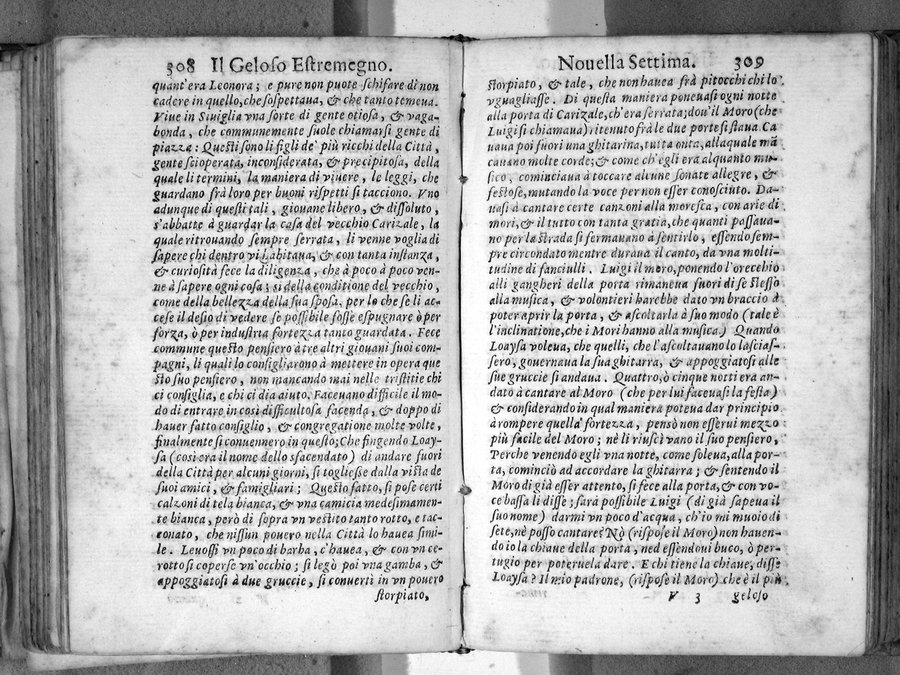 308 Il Geloso Estremegno.
quant'era Leonora; e pure non puote schifare di non
cadere in quello, che sospettaua, & che tanto temeua.
Viue in Siuiglia vna sorte di gente otiosa, & vaga-
bonda, che communemente suole chiamarsi gente di
piazza: Questi sono li figli de' più ricchi della Città,
gente scioperata, inconsiderata, & precipitosa, della
quale li termini, la maniera di viuere, le leggi, che
guardano frà loro per buoni rispetti si tacciono. Vno
adunque di questi tali, giouane libero, & dissoluto,
s'abbatte à guardar la casa del vecchio Carizale, la
quale ritrouando sempre serrata, li venne voglia di
sapere chi dentro vi habitaua, & con tanta instanza,
& curiosità fece la diligenza, che à poco à poco ven-
ne à sapere ogni cosa; si della conditione del vecchio,
come della bellezza della sua sposa, per lo che se li ac-
cese il desio di vedere se possibile fosse espugnare ò per
forza, ò per industria fortezza tanto guardata. Fece
commune questo pensiero à tre altri giouani suoi com-
pagni, li quali lo consigliarono à mettere in opera que
sto suo pensiero, non mancando mai nelle tristitie chi
ci consiglia, e chi ci dia aiuto. Faceuano difficile il mo-
do di entrare in cosi difficultosa facenda, & doppo di
hauer fatto consiglio, & congregatione molte volte,
finalmente si conuennero in questo; Che fingendo Loay-
sa (cosi era il nome dello sfacendato) di andare fuori
della Città per alcuni giorni, si togliesse dalla vista de
suoi amici, & famigliari; Questo fatto, si pose certi
calzoni di tela bianca, & vna camicia medesimamen-
te bianca, però di sopra vn vestito tanto rotto, e tac-
conato, che nissun pouero nella Città lo hauea simi-
le. Leuossi vn poco di barba, c'hauea, & con vn ce-
rotto si coperse vn'occhio; si legò poi vna gamba, &
appoggiatosi à due gruccie, si conuertì in vn pouero
storpiato,
Nouella Settima. 309
storpiato, & tale, che non hauea frà pitocchi chi lo
vguagliasse. Di questa maniera poneuasi ogni notte
alla porta di Carizale, ch'era serrata; dou'il Moro (che
Luigi si chiamaua) ritenuto frà le due porte si staua. Ca
uaua poi fuori vna ghitarina, tutta onta, alla quale mã
cauano molte corde; & come ch'egli era alquanto mu-
sico, cominciaua à toccare alcune sonate allegre, &
festose, mutando la voce per non esser conosciuto. Da-
uasi à cantare certe canzoni alla moresca, con arie di
mori, & il tutto con tanta gratia, che quanti passaua-
no per la strada si fermauano à sentirlo, essendo sem-
pre circondato mentre duraua il canto, da vna molti-
tudine di fanciulli. Luigi il moro, ponendo l'orecchio
alli gangheri della porta rimaneua fuori di se stesso
alla musica, & volontieri harebbe dato vn braccio à
poter aprir la porta, & ascoltarla à suo modo (tale è
l'inclinatione, che i Mori hanno alla musica.) Quando
Loaysa voleua, che quelli, che l'ascoltauano lo lascias-
sero, gouernaua la sua ghitarra, & appoggiatosi alle
sue gruccie si andaua. Quattro, ò cinque notti era an-
dato à cantare al Moro (che per lui faceuasi la festa)
& considerando in qual maniera poteua dar principio
à rompere quella fortezza, pensò non esserui mezzo
più facile del Moro; nè li riuscì vano il suo pensiero,
Perche venendo egli vna notte, come soleua, alla por-
ta, cominciò ad accordare la ghitarra; & sentendo il
Moro di già esser attento, si fece alla porta, & con vo-
ce bassa li disse; sarà possibile Luigi (di già sapeua il
suo nome) darmi vn poco d'acqua, ch'io mi muoio di
sete, nè posso cantare? Nò (rispose il Moro) non hauen-
do io la chiaue della porta, ned essendoui buco, ò per-
tugio per poteruela dare. E chi tiene la chiaue, disse
Loaysa? Il mio padrone, (rispose il Moro) che è il più
V 3 geloso